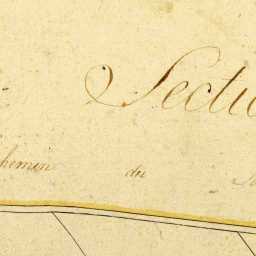 Sectio
chemin du